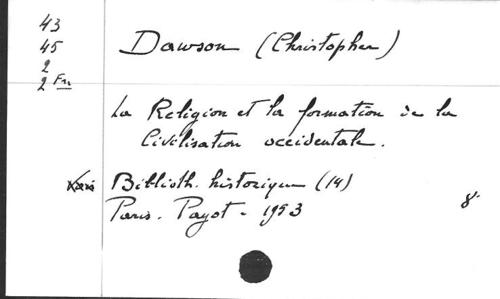 43
45
2
2 Fr
Dawson (Christopher)
La Religion et la formation de la
Civilisation occidentale.
Biblioth. historique (14)
Paris. Payot - 1953
8°